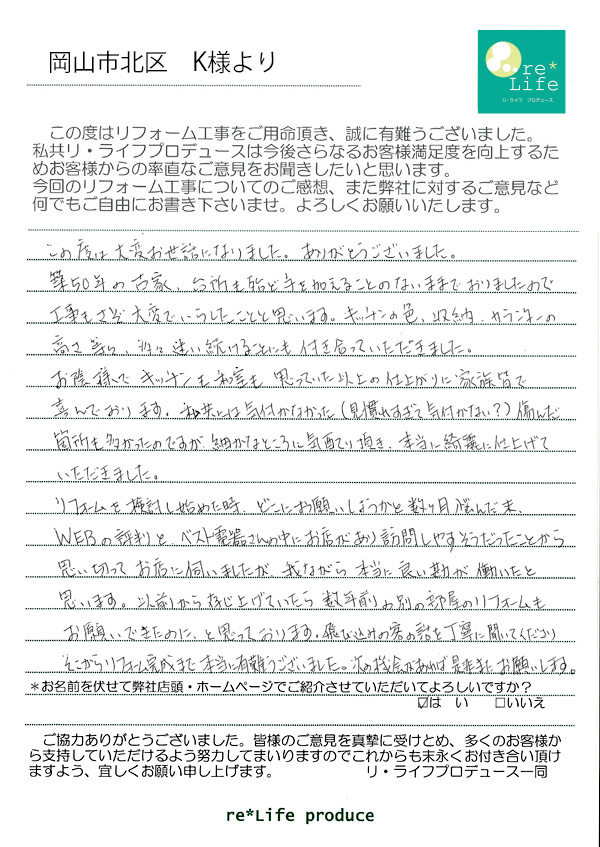 岡山市北区　K様より
re*
Life
リ・ライフ　プロデュース
この度はリフォーム工事をご用命頂き、誠に有難うございました。
私共リ・ライフプロデュースは今後さらなるお客様満足度を向上するた
めお客様からの率直なご意見をお聞きしたいと思います。
今回のリフォーム工事についてのご感想、また弊社に対するご意見など
何でもご自由にお書き下さいませ。よろしくお願いいたします。
この度は大変お世話になりました。ありがとうございました。
築50年の古家、台所も殆ど手を加えることのないままでおりましたので
工事もさぞ大変でいらしたことと思います。キッチンの色、収納、カランターの
高さ等々、迷い続けることにも付き合っていただきました。
お陰様で キッチンも和室も 思っていた以上の仕上がりに 家族皆で
喜んでおります。私共には気付かなかった(見慣れすぎて気付かない?)傷んだ
箇所も多かったのですが、細かなところに気配り頂き、本当に綺麗に仕上げて
いただきました。
リフォームを検討し始めた時、どこにお願いしようかと数ヶ月悩んだ末、
WEBの評判と、ベスト電器さんの中にお店があり訪問しやすそうだったことから
思い切ってお店に伺いましたが、我ながら本当に良い勘が働いたと
思います。以前から存じ上げていたら数年前の別の部屋のリフォームも
お願いできたのに、と思っております。飛び込みの客の話を丁寧に聞いてくださり
そこからリフォーム完成まで本当に有難うございました。次の機会があれば是非またお願いします。
*お名前を伏せて弊社店頭・ホームページでご紹介させていただいてよろしいですか?
☑は　い　　□いいえ
ご協力ありがとうございました。皆様のご意見を真摯に受けとめ、多くのお客様か
ら支持していただけるよう努力してまいりますのでこれからも末永くお付き合い頂け
ますよう、宜しくお願い申し上げます。　　　リ・ライフプロデュース一同
re*Life produce